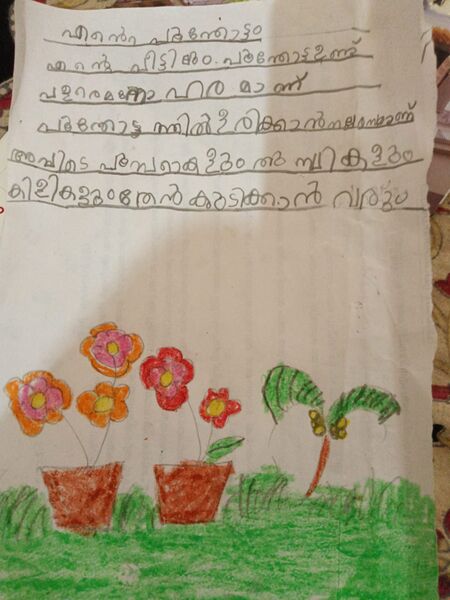 എന്റെ പൂന്തോട്ടം
എന്റെ വീട്ടിലും പൂന്തോട്ടമുണ്ട്
വളരെമനോഹരമാണ്
പൂന്തോട്ടത്തിൽഇരിക്കാൻനല്ലരസമാണ്
അവിടെ പൂമ്പാറ്റകളും തുമ്പികളും
കിളികളുംതേൻ കുടിക്കാൻ വരും